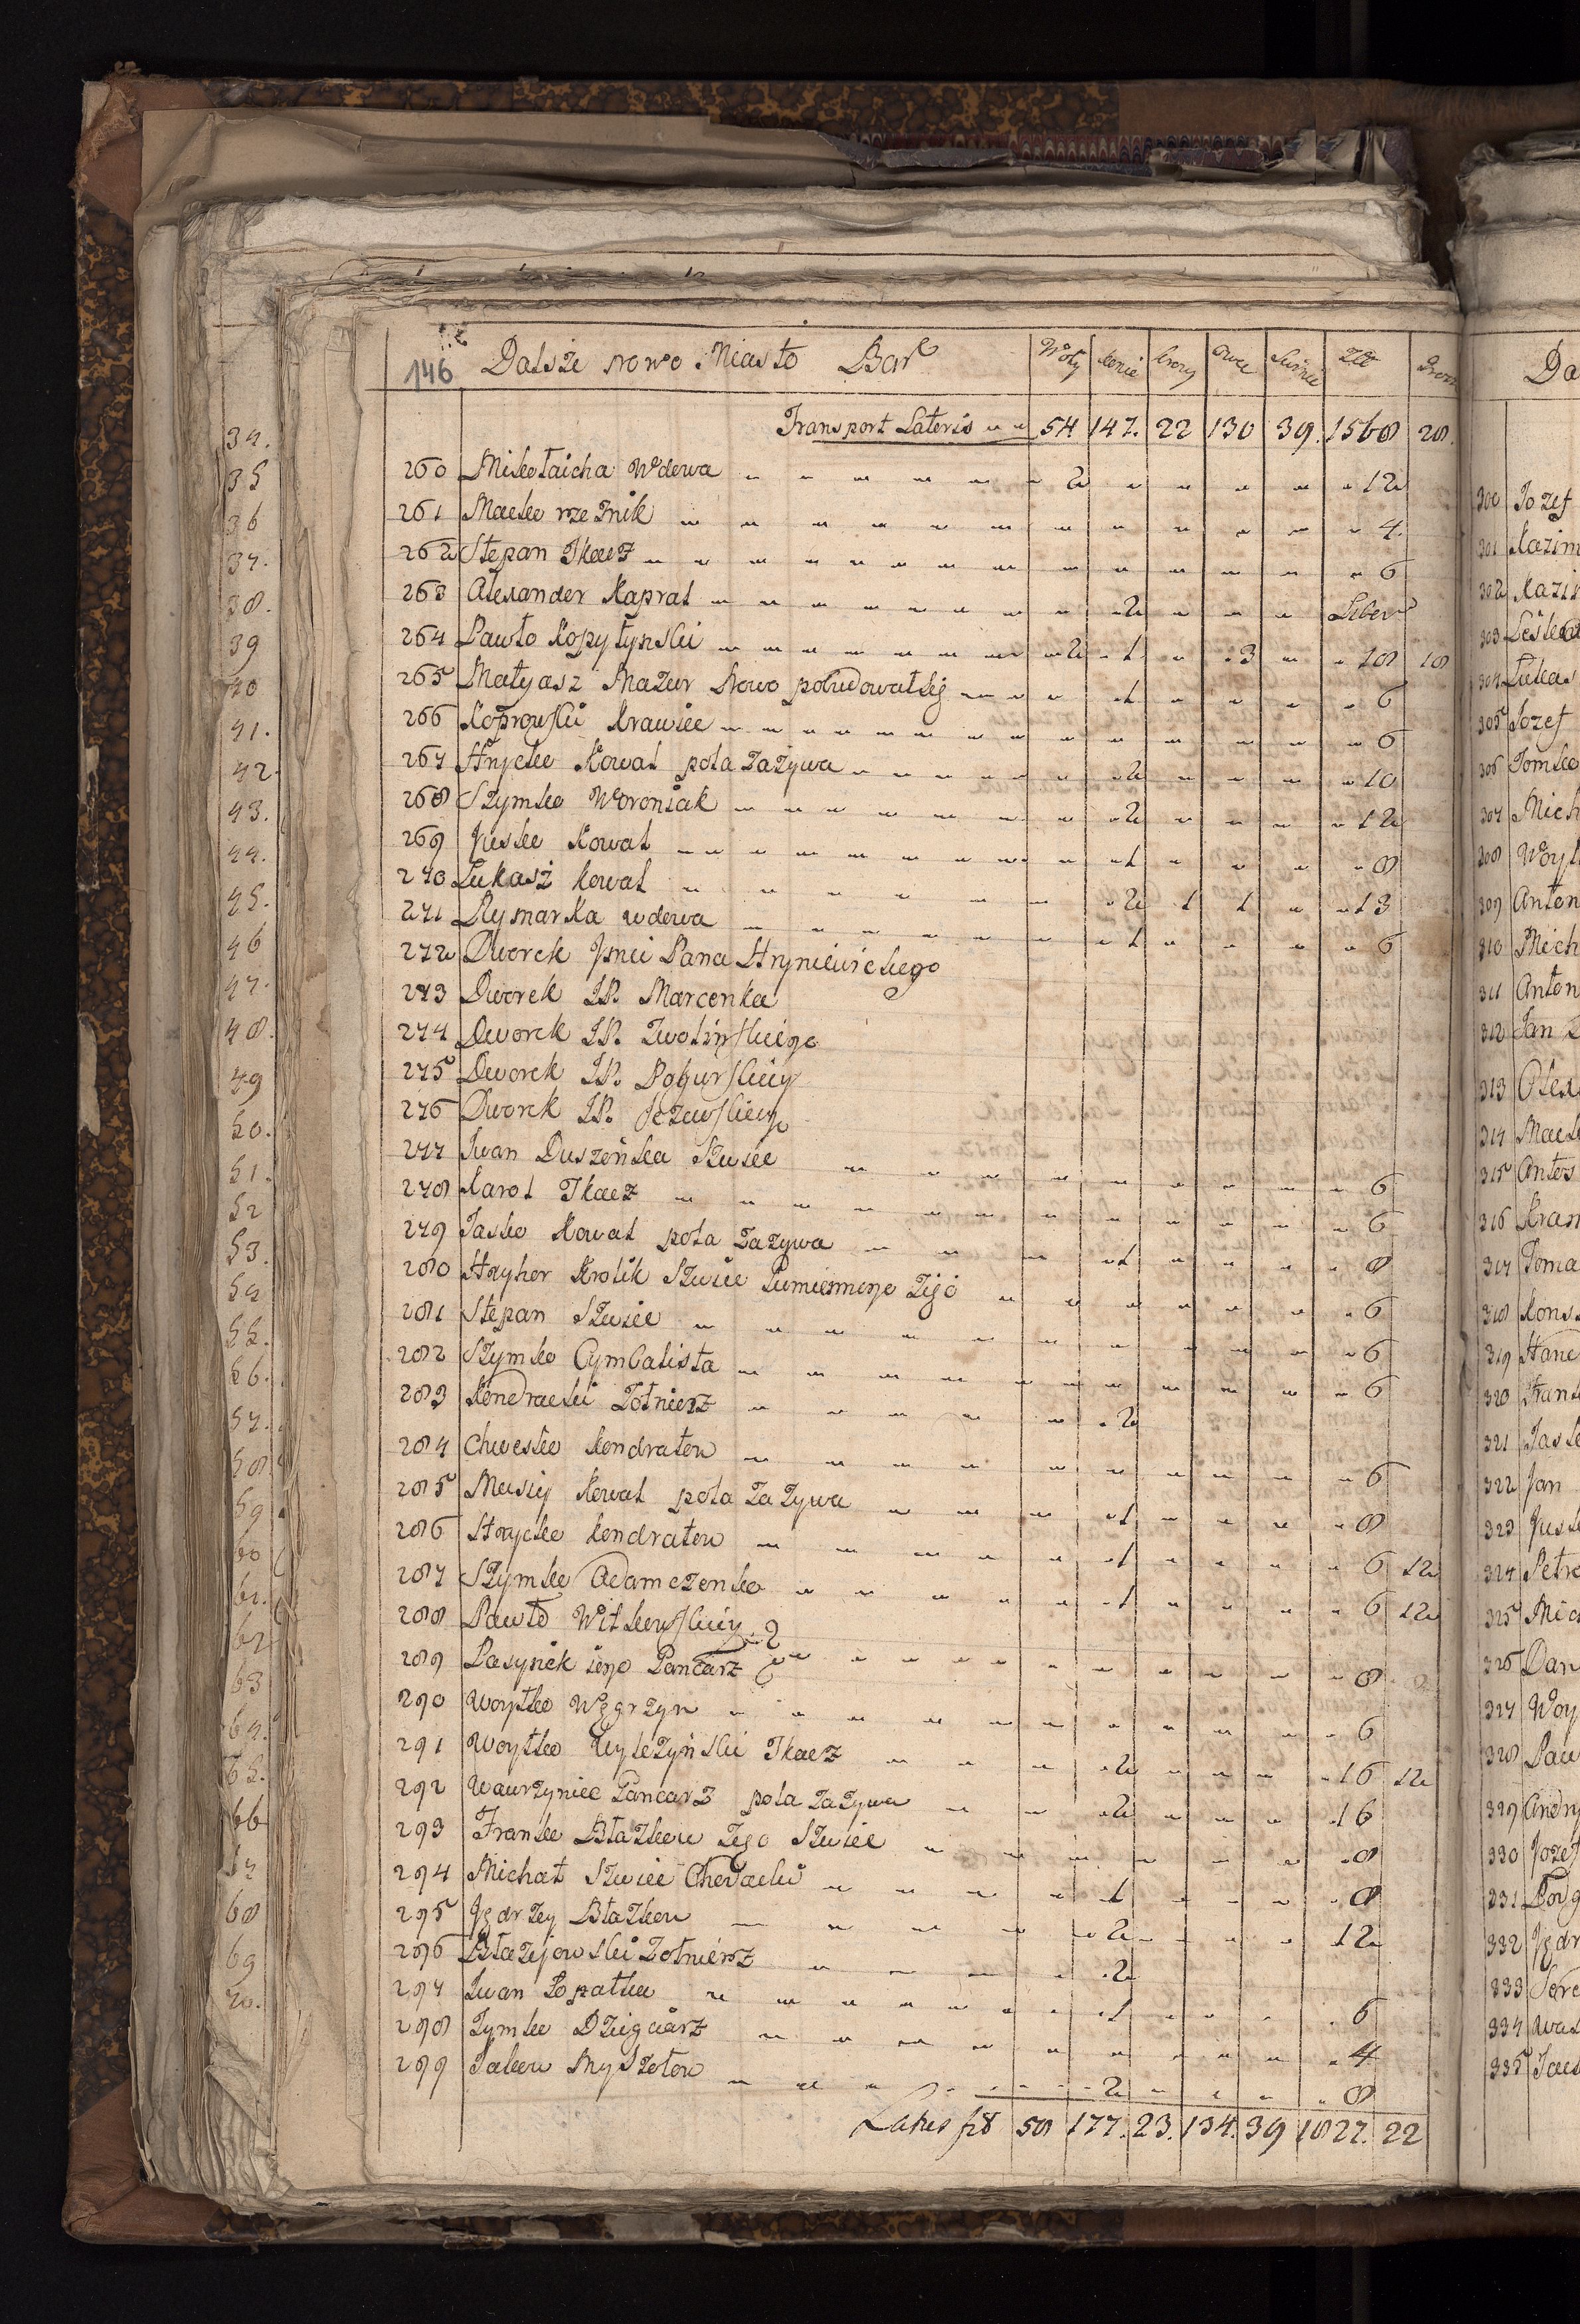 146 Dalsże nowo Miasto Bar Woły konie krowy owce Swinie Złt
Transport Lateris 54 147. 22 130 39. 1568 28.
260 Mikołaicha Wdowa 2 12
261 Macko rzeżnik 4.
262 Stepan Tkacz 6
263 Alexander Kapral 2 Liber
264 Pawło Kopytynski 2 1 3 18 18
265 Matyasz Mazur Nowo pobudowalsię 1 6
266 Koprowski Krawiec 6
267 Hrycko Kowal pola zażywa 2 10
268 Szymko Woroniak 2 12
269 Jusko Kowal 1 8
270 Łukasż kowal 2 1 1 13
271 Rymarka wdowa 1 6
272 Dworek Jmci Pana Hryniewickiego
273 Dworek IP. Marcenka
274 Dworek IP. Zwolinskiego
275 Dworek IP.
276 Dworek IP.
277 Iwan Duszeńka Szwiec 6
278 Karol Tkacz 6
279 Jasko Kowal pola zażywa 1 8
280 Hryhor Krolik Szwiec
281 Stepan Szwiec 6
282 Szymko Cymbalista 6
283 Kondracki Zołnierz 2
284 Chwesko kondratow 6
285 Musiy Kowal pola zażywa 1 8
286 Hrycko kondratow 1 6 12
287 Szymko Adamczenko 1 6 12
288 Pawło Witkowskiiy
289 Pasynek iego Gancarz 8
290 Woytko Węgrzyn 6
291 Woytko Wyleżyński Tkacz 2 16 12
292 Wawrzyniec Gancarz pola zażywa 2 16
293 Franko Błażkow Szwiec 8
294 Michał Szwiec 1 8
295 Jędrzey Błażkow 2 12
296 Błażejowski Zołnierz 2
297 Iwan Łopatka 1 6
298 Tymko Dziegciarz 4
299 Jakow Myszołow 2 8
Latus 58 177. 23. 134. 39 1827. 22
34.
35
36
37.
38.
39
40
41.
42.
43.
44.
45.
46
47.
48.
49
50.
51.
52
53.
54
55.
56.
57.
58.
59
60
61.
62
63
64.
65.
66
67
68
69
70.
Da
300 Jozef
301 Kazim
302 Kazim
304 Łukas
305 Jozef
306 Tomko
307 Mich
308 Woyt
309 Anton
310 Mich
311 Anton
312 Jan
313 Olex
314 Mack
315 Antos
317 Toma
318 Kons
319 Hane
321 Jask
322 Jan
323 Jusk
324 Petro
325 Mic
326 Dan
327 Woy
328 Paw
329 Andry
330 Jozef
332 Jędr
334 Was